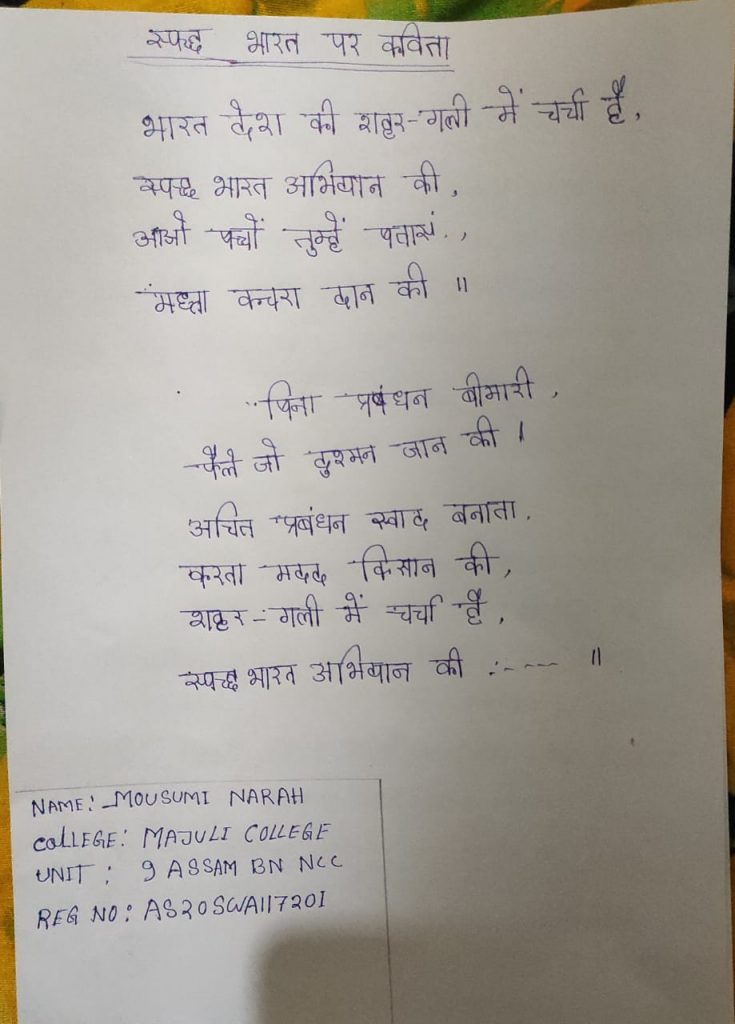 स्पच्छ भारत पर कविता
भारत देश की शहर-गली में चर्चा है,
स्पच्छ भारत अभियान की,
आओ पच्चों तुम्हें पताएं,
कचरा दान की ॥
पिना प्रबंधन बीमारी,
फैले जो दुश्मन जान की ।
अचित प्रबंधन खाद बनाता,
करता मदद किसान की,
शहर-गली में चर्चा है,
स्पच्छ भारत अभियान की :---- ॥
NAME:- MOUSUMI NARAH
COLLEGE: MAJULI COLLEGE
UNIT : 9 ASSAM BN NCC
REG NO: AS20SWA117201